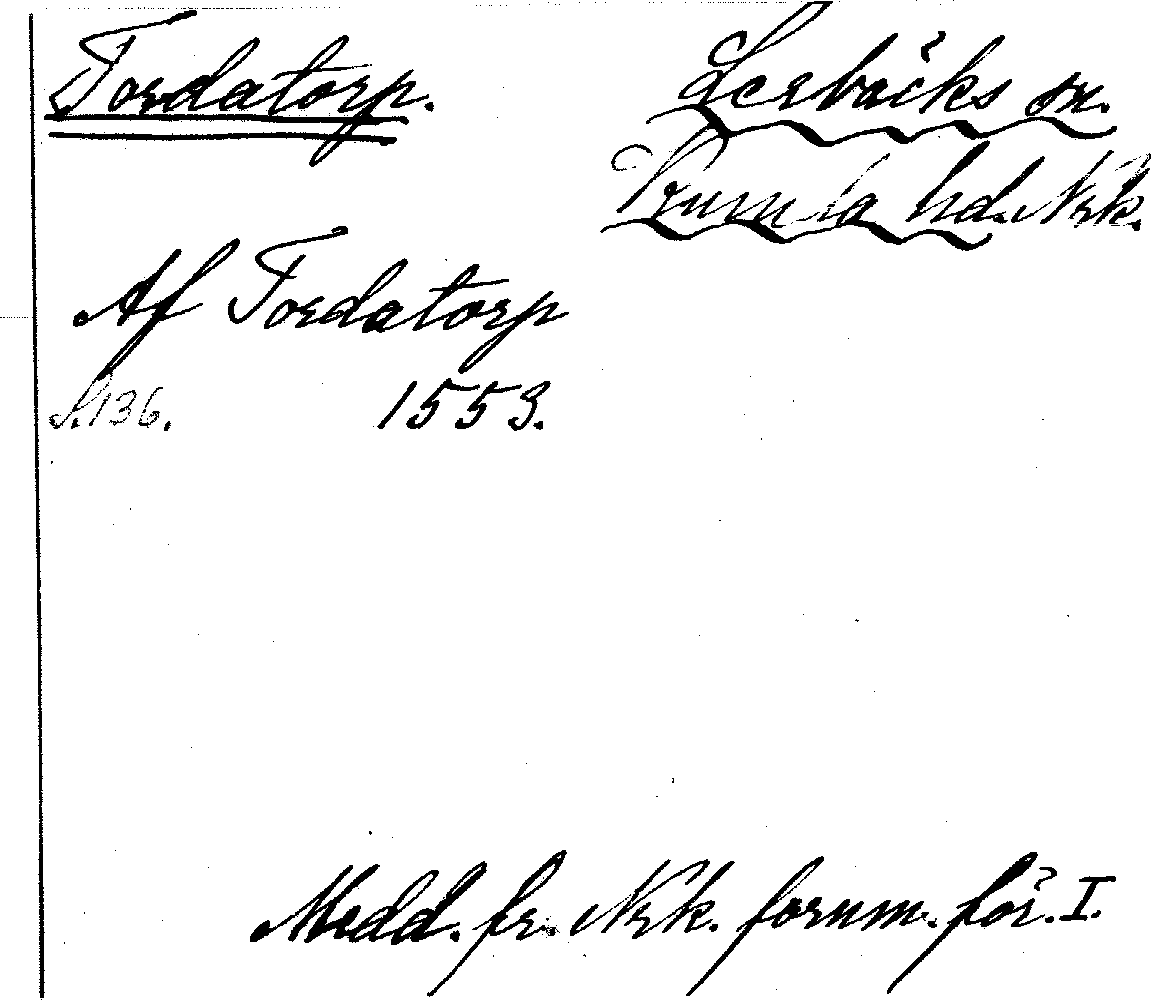 Tordatorp. Lerbäcks sn.
Kumla hd. Nrk.
Af Tordatorp
S. 136. 1553.
Medd. fr. Nrk. fornm. för. I.